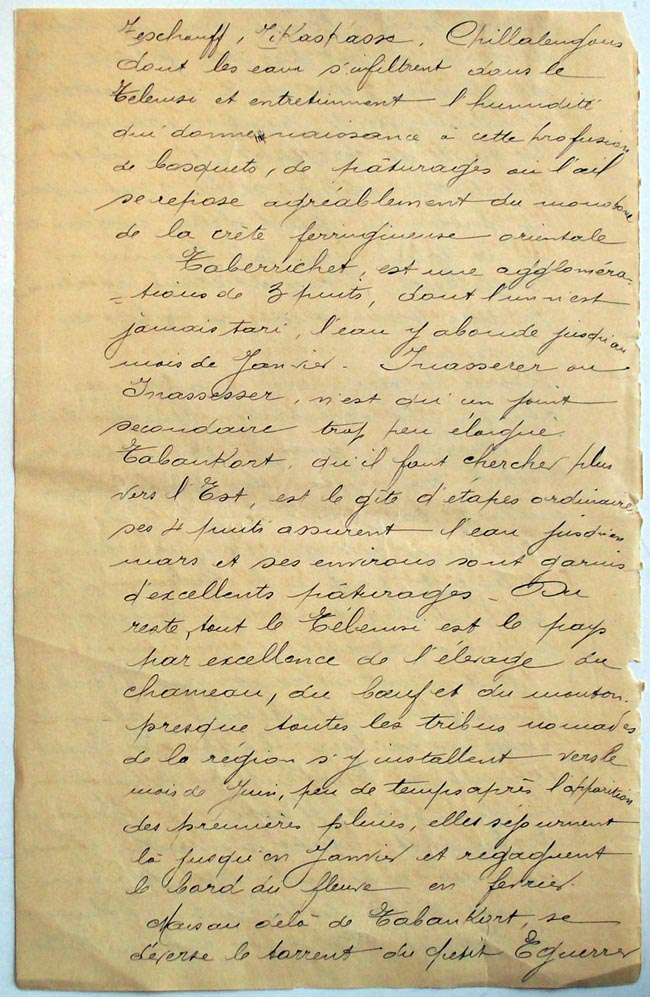 Zeschouff, Zikaskasse, Chillalengous
dont les eaux s'infiltrent dans le
Télemsi et entretiennent l'humidité
qui donne naissance à cette profusion
de bosquets, de pâturages où l'œil
se repose agréablement du monotone
de la crête ferrugineuse orientale
Taberrichet, est une aggloméra-
-tions de 3 puits, dont l'un n'est
jamais tari, l'eau y abonde jusqu'au
mois de Janvier. Inasserer ou
Inassesser, n'est qu'un point
secondaire trop peu éloigné.
TabanKort, qu'il faut chercher plus
vers l'Est, est le gîte d'étapes ordinaire
ses 4 puits assurent l'eau jusqu'en
mars et ses environs sont garnis
d'excellents pâturages - Du
reste, tout le Télemsi est le pays
par excellence de l'élevage du
chameau, du bœuf et du mouton.
presque toutes les tribus nomades
de la région s'y installent vers le
mois de Juin, peu de temps après l'apparition
des premières pluies, elles séjournent
là jusqu'en Janvier et regagnent
le bord du fleuve en février.
Mais au delà de TabanKort, se
déverse le torrent du petit Eguerrer